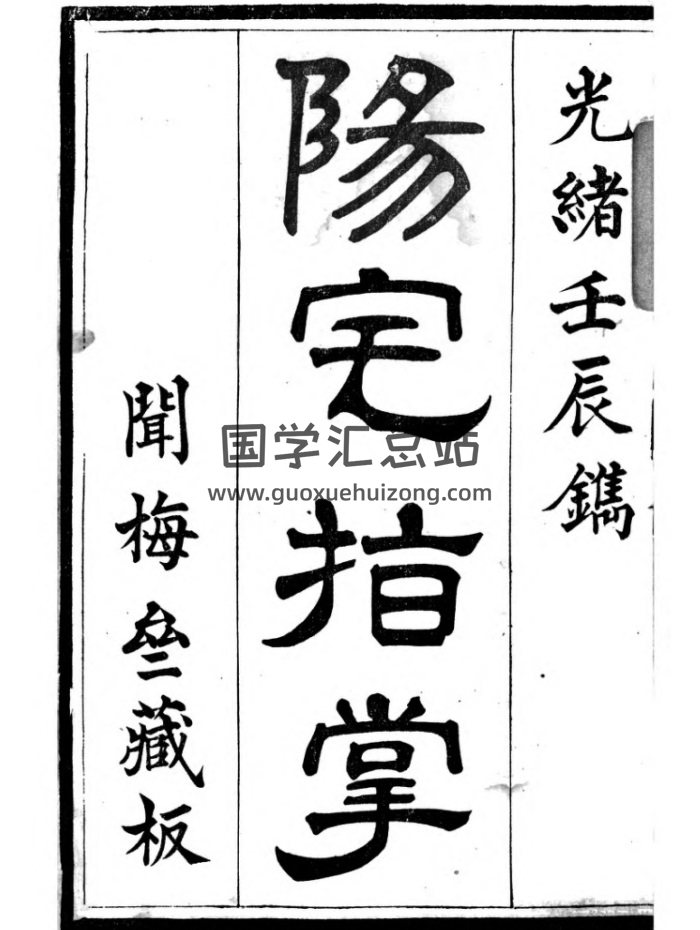 光緒壬辰鐫
陽宅指掌
聞梅亝藏板
国学汇总站
www.guoxuehuizong.com